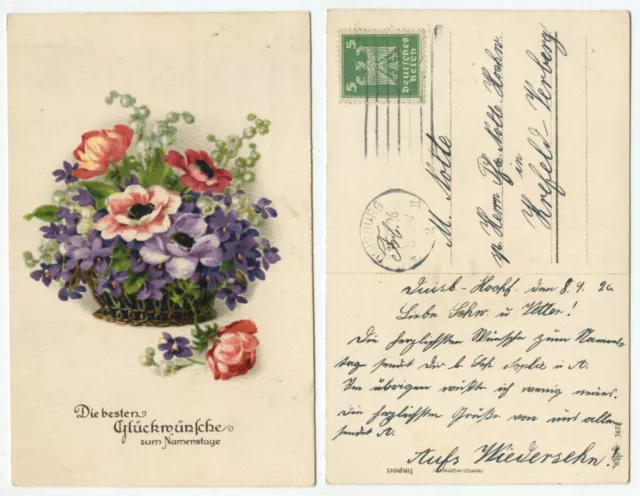 Die besten
Glückwünsche
zum Namenstage
5 5
Deutsches
Reich
M. Nolte
p. Herrn Nolte
in
Krefeld-Verberg
Duisb.-Hochf. den 8.4.26
Liebe u Vetter!
Die herzlichsten Wünsche zum Namens-
tage sendet dir d. u A.
Im übrigen wüßte ich wenig neues.
Die herzlichsten Grüße von uns allen
sendet A.
Aufs Wiedersehn!
Import